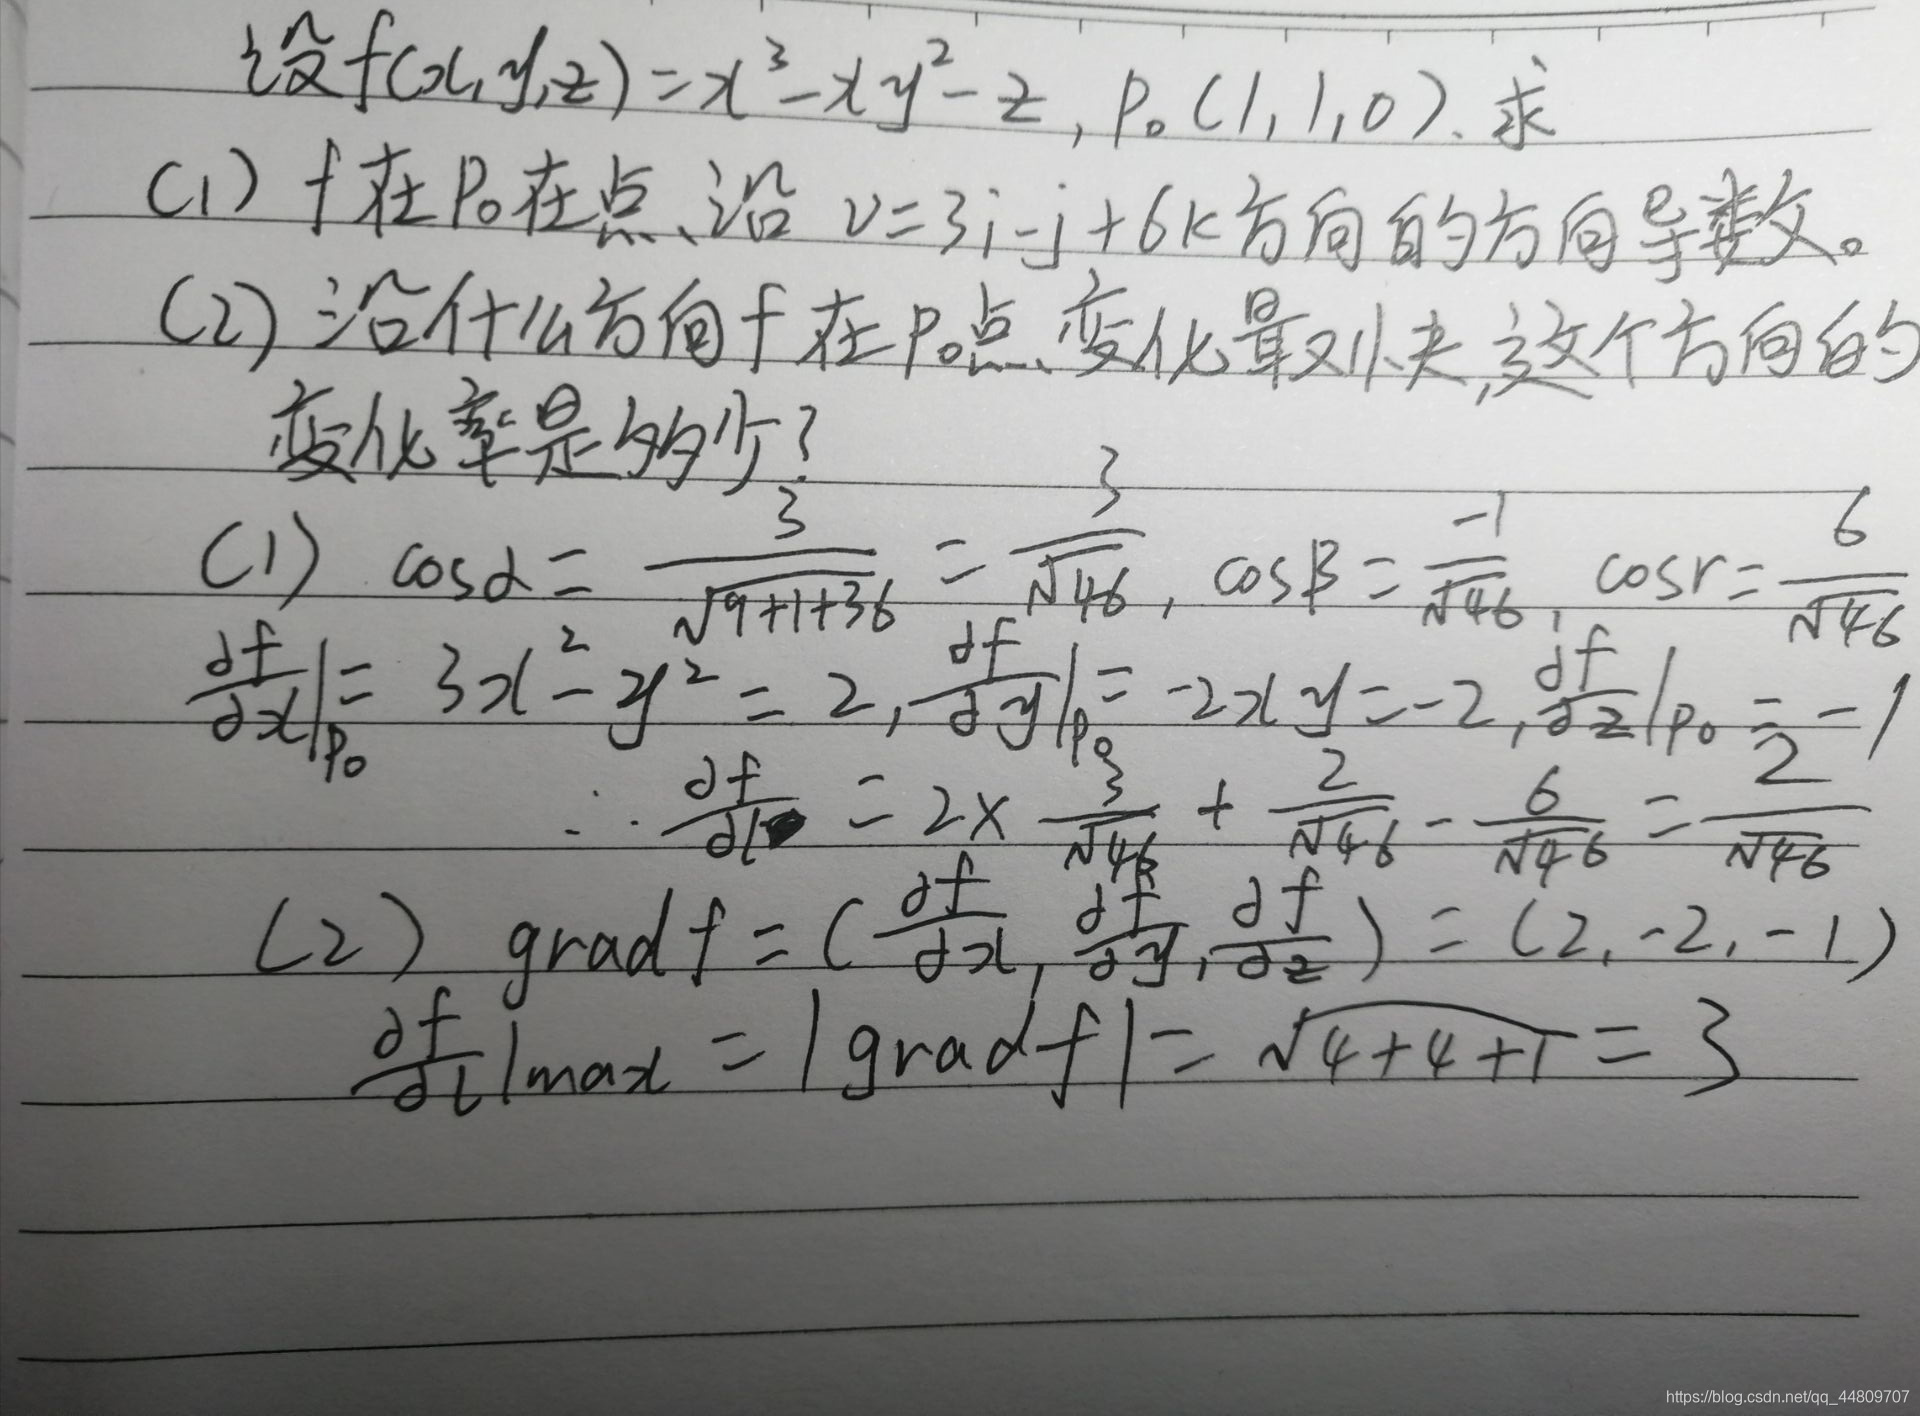 设f(x,y,z)=x³-xy²-z, P₀(1,1,0).求
(1) f在P₀在点沿 v=3i-j+6k方向的方向导数。
(2)沿什么方向f在P₀点变化最 这个方向的
变化率是多少?
(1) cosα=3/√(9+1+36)=3/√46, cosβ=-1/√46, cosr=6/√46
∂f/∂x|P₀=3x²-y²=2, ∂f/∂y|P₀=-2xy=-2, ∂f/∂z|P₀=-1
∴ ∂f/∂l=2×3/√46+2/√46-6/√46=2/√46
(2) gradf=(∂f/∂x,∂f/∂y,∂f/∂z)=(2,-2,-1)
∂f/∂l|max=|gradf|=√(4+4+1)=3
https://blog.csdn.net/qq_44809707